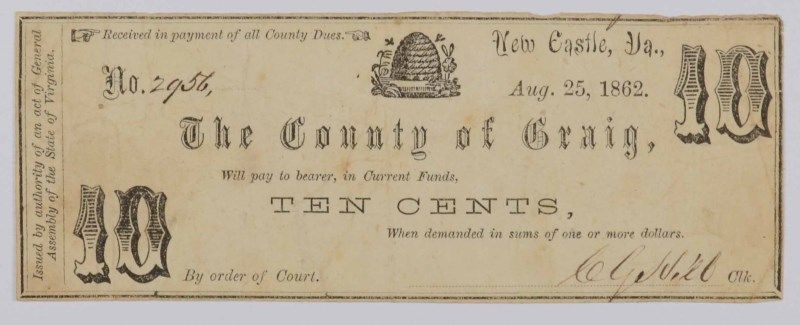 Issued by authority of an act of General
Assembly of the State of Virginia.
Received in payment of all County Dues.
New Castle, Va.,
No. 2956,
Aug. 25, 1862.
10
The County of Graig,
Will pay to bearer, in Current Funds,
TEN CENTS,
When demanded in sums of one or more dollars.
10
By order of Court.
C G Hill Clk.